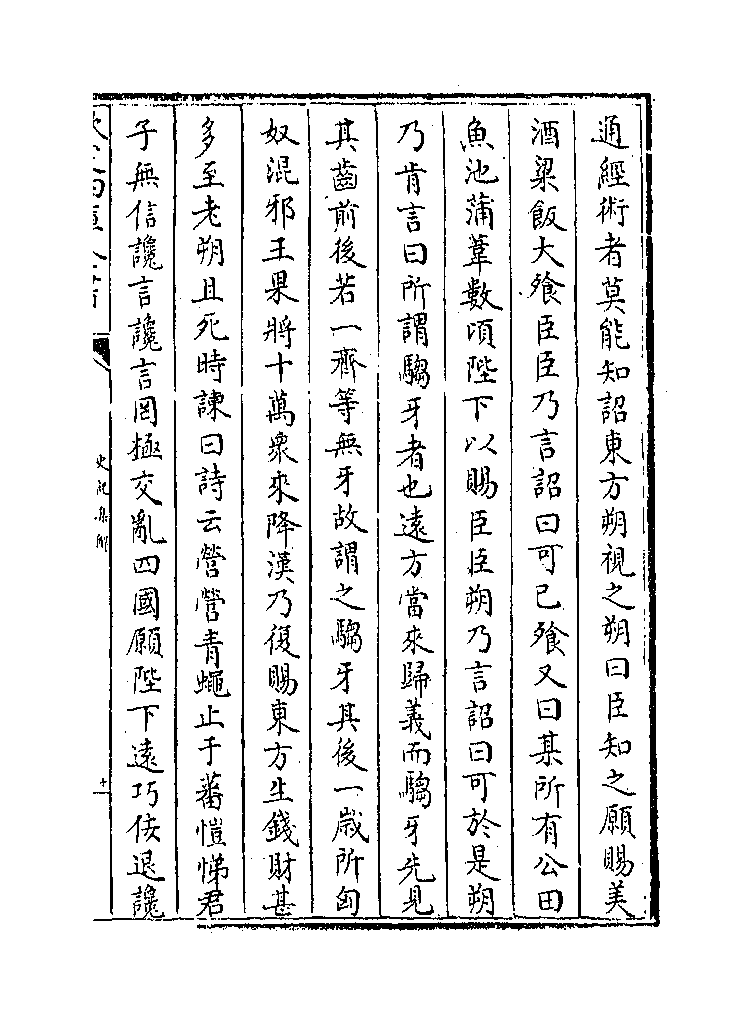 通經術者莫能知詔東方朔視之朔曰臣知之願賜美
酒粱飯大飱臣臣乃言詔曰可已飱又曰某所有公田
魚池蒲葦數頃陛下以賜臣臣朔乃言詔曰可於是朔
乃肯言曰所謂騶牙者也逺方當來歸義而騶牙先見
其齒前後若一齊等無牙故謂之騶牙其後一嵗所匈
奴混邪王果將十萬衆來降漢乃復賜東方生錢財甚
多至老朔且死時諫曰詩云營營青蠅止于蕃愷悌君
子無信讒言讒言罔極交亂四國願陛下逺巧佞退讒
史記集解
十